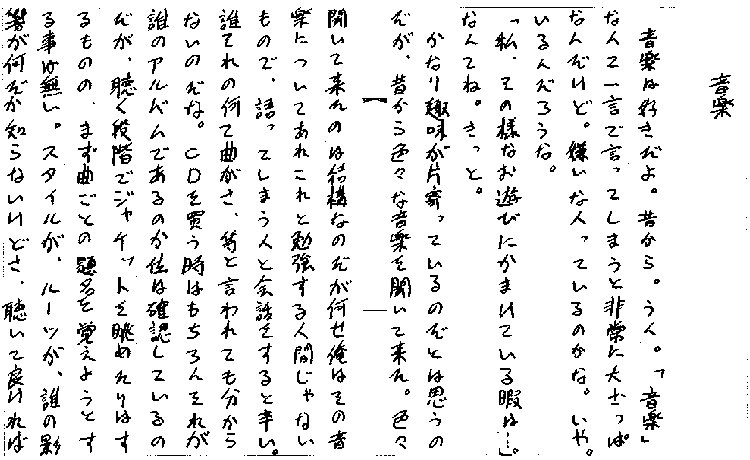 音楽
音楽は好きだよ。昔から。うん。「音楽」
なんて一言で言ってしまうと非常に大ざっぱ
なんだけど。嫌いな人っているのかな。いや。
いるんだろうな。
「私、その様なお遊びにかまけている暇は…」。
なんてね。きっと。
かなり趣味が片寄っているのだとは思うの
だが、昔から色々な音楽を聞いて来た。色々
聞いて来たのは結構なのだが何せ俺はその音
楽についてあれこれと勉強する人間じゃない
もので、語ってしまう人と会話をすると辛い。
誰それの何て曲がさ、等と言われても分から
ないのだな。CDを買う時はもちろんそれが
誰のアルバムであるのか位は確認しているの
だが、聴く段階でジャケットを眺めたりはす
るものの、まず曲ごとの題名を覚えようとす
る事は無い。スタイルが、ルーツが、誰の影
響が何だか知らないけどさ、聴いて良ければ